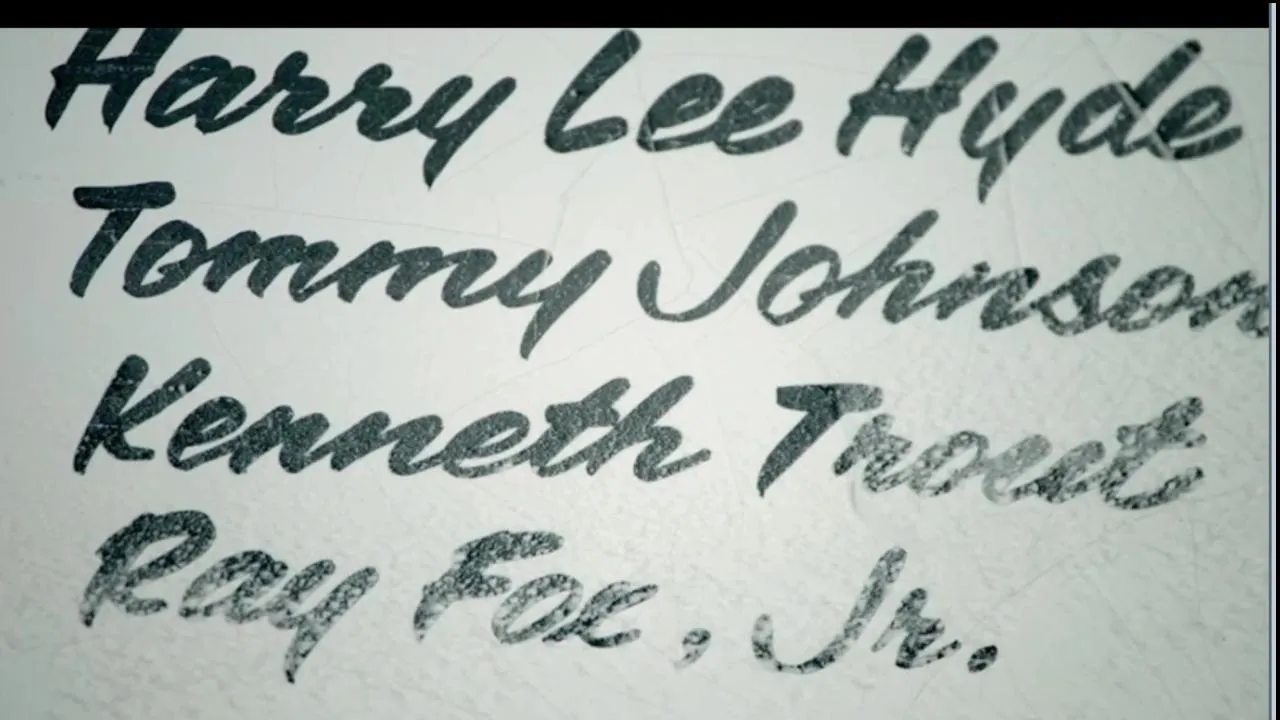 Harry Lee Hyde
Tommy Johnson
Kenneth Trout
Ray Fox, Jr.